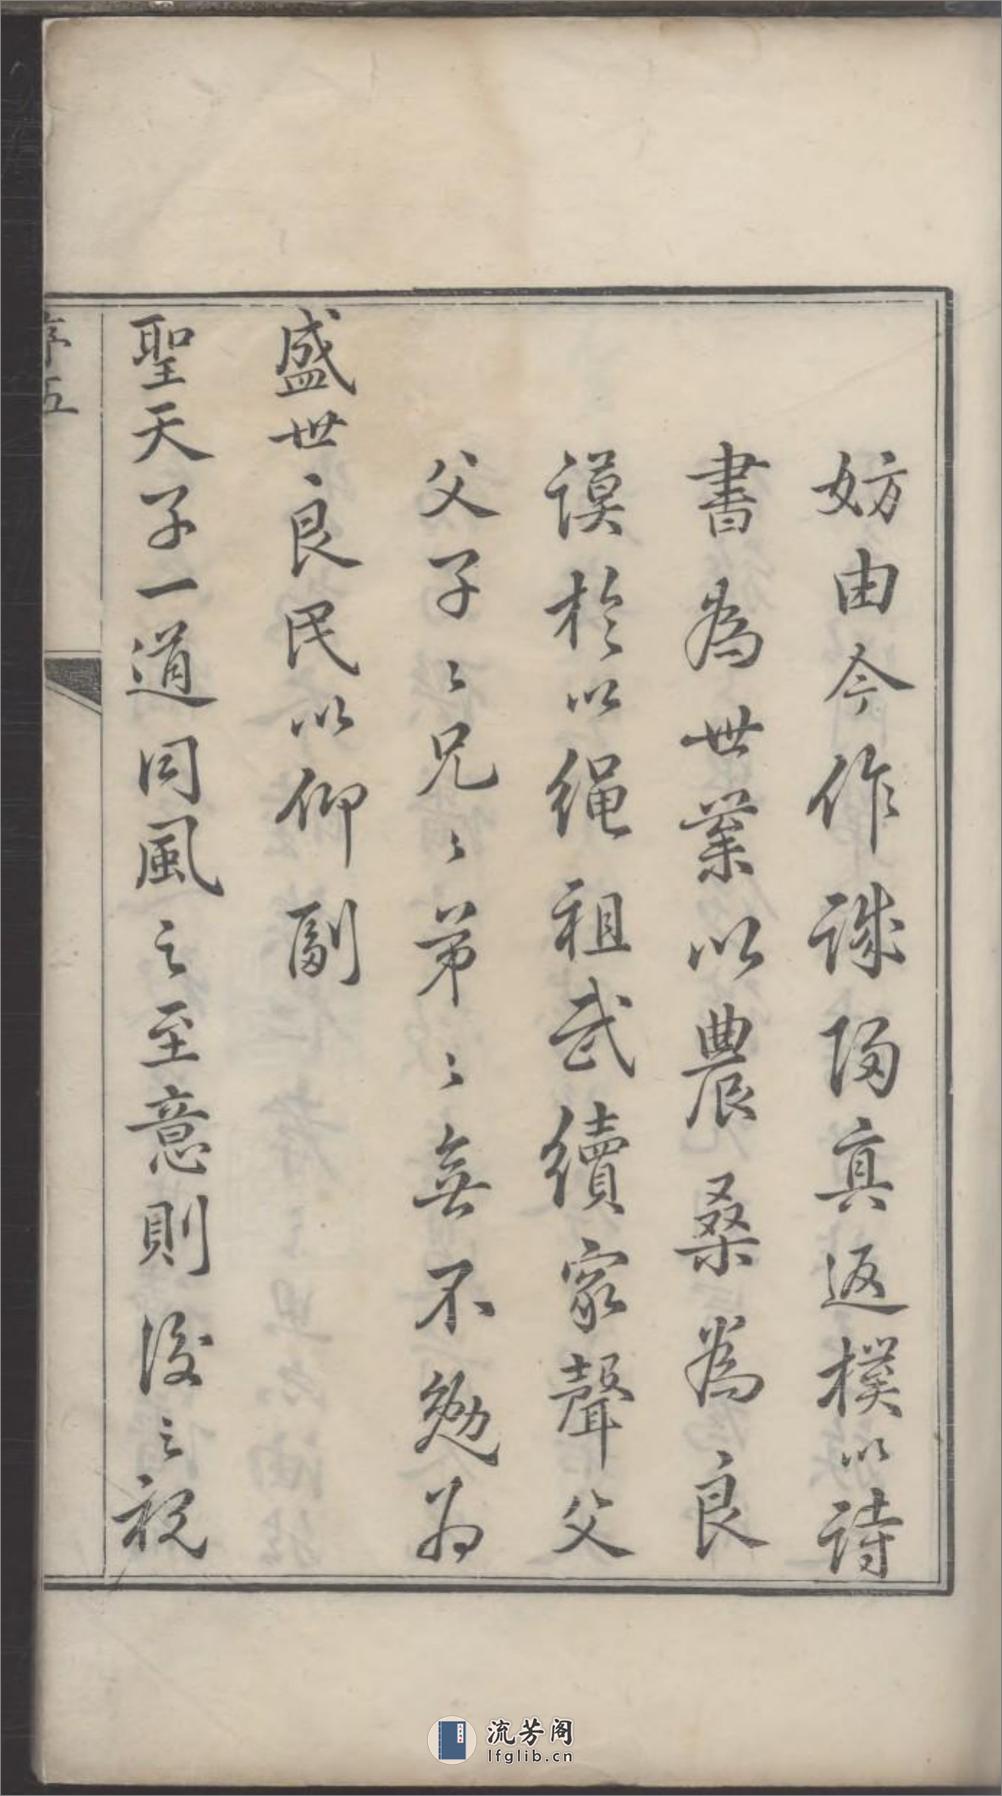 妨由今作誅歸真返樸以詩
書為世業以農桑為良
謨於以繩祖武續家聲父
父子〻兄〻弟〻無不勉为
盛世良民以仰副
聖天子一道同風之至意則後之視
序五
流芳阁
lfglib.cn